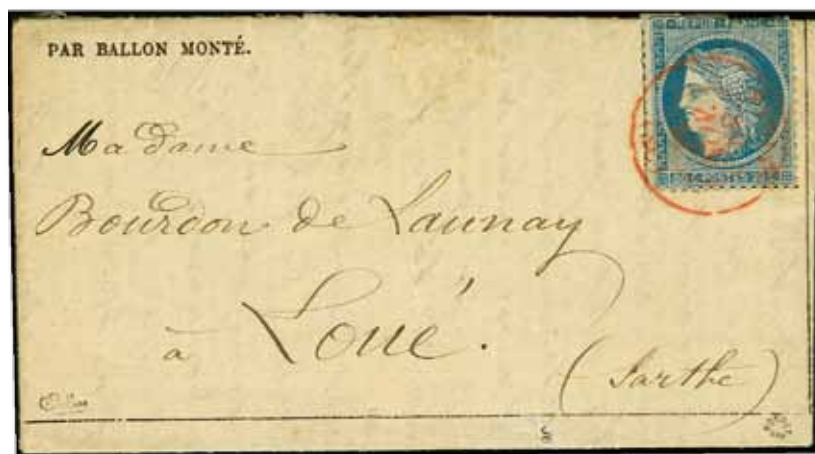 PAR BALLON MONTÉ.
Madame
Bourdon de Launay
à Loué.
(Sarthe)